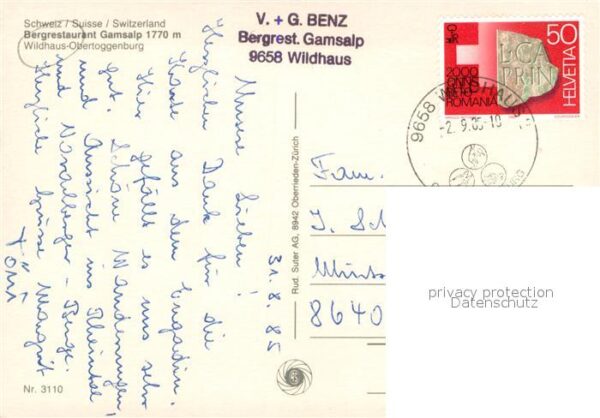 Schweiz / Suisse / Switzerland
Bergrestaurant Gamsalp 1770 m
Wildhaus-Obertoggenburg
V. + G. BENZ
Bergrest. Gamsalp
9658 Wildhaus
50
HELVETIA
2000
ROMANIA
L·CA
PRIN
9658 WILDHAUS
-2.9.85-10
31.8.85
Meine Lieben!
Herzlichen Dank für die
Karte aus dem Engadin.
Hier gefällt es uns sehr
gut. Schöne Wanderungen,
und Aussicht ins Rheintal
und Voralberger - Berge.
Herzliche Grüsse Margrit
+ Toni
Rud. Suter AG, 8942 Oberrieden-Zürich
Fam.
J. Sch
8640
Nr. 3110
privacy protection
Datenschutz